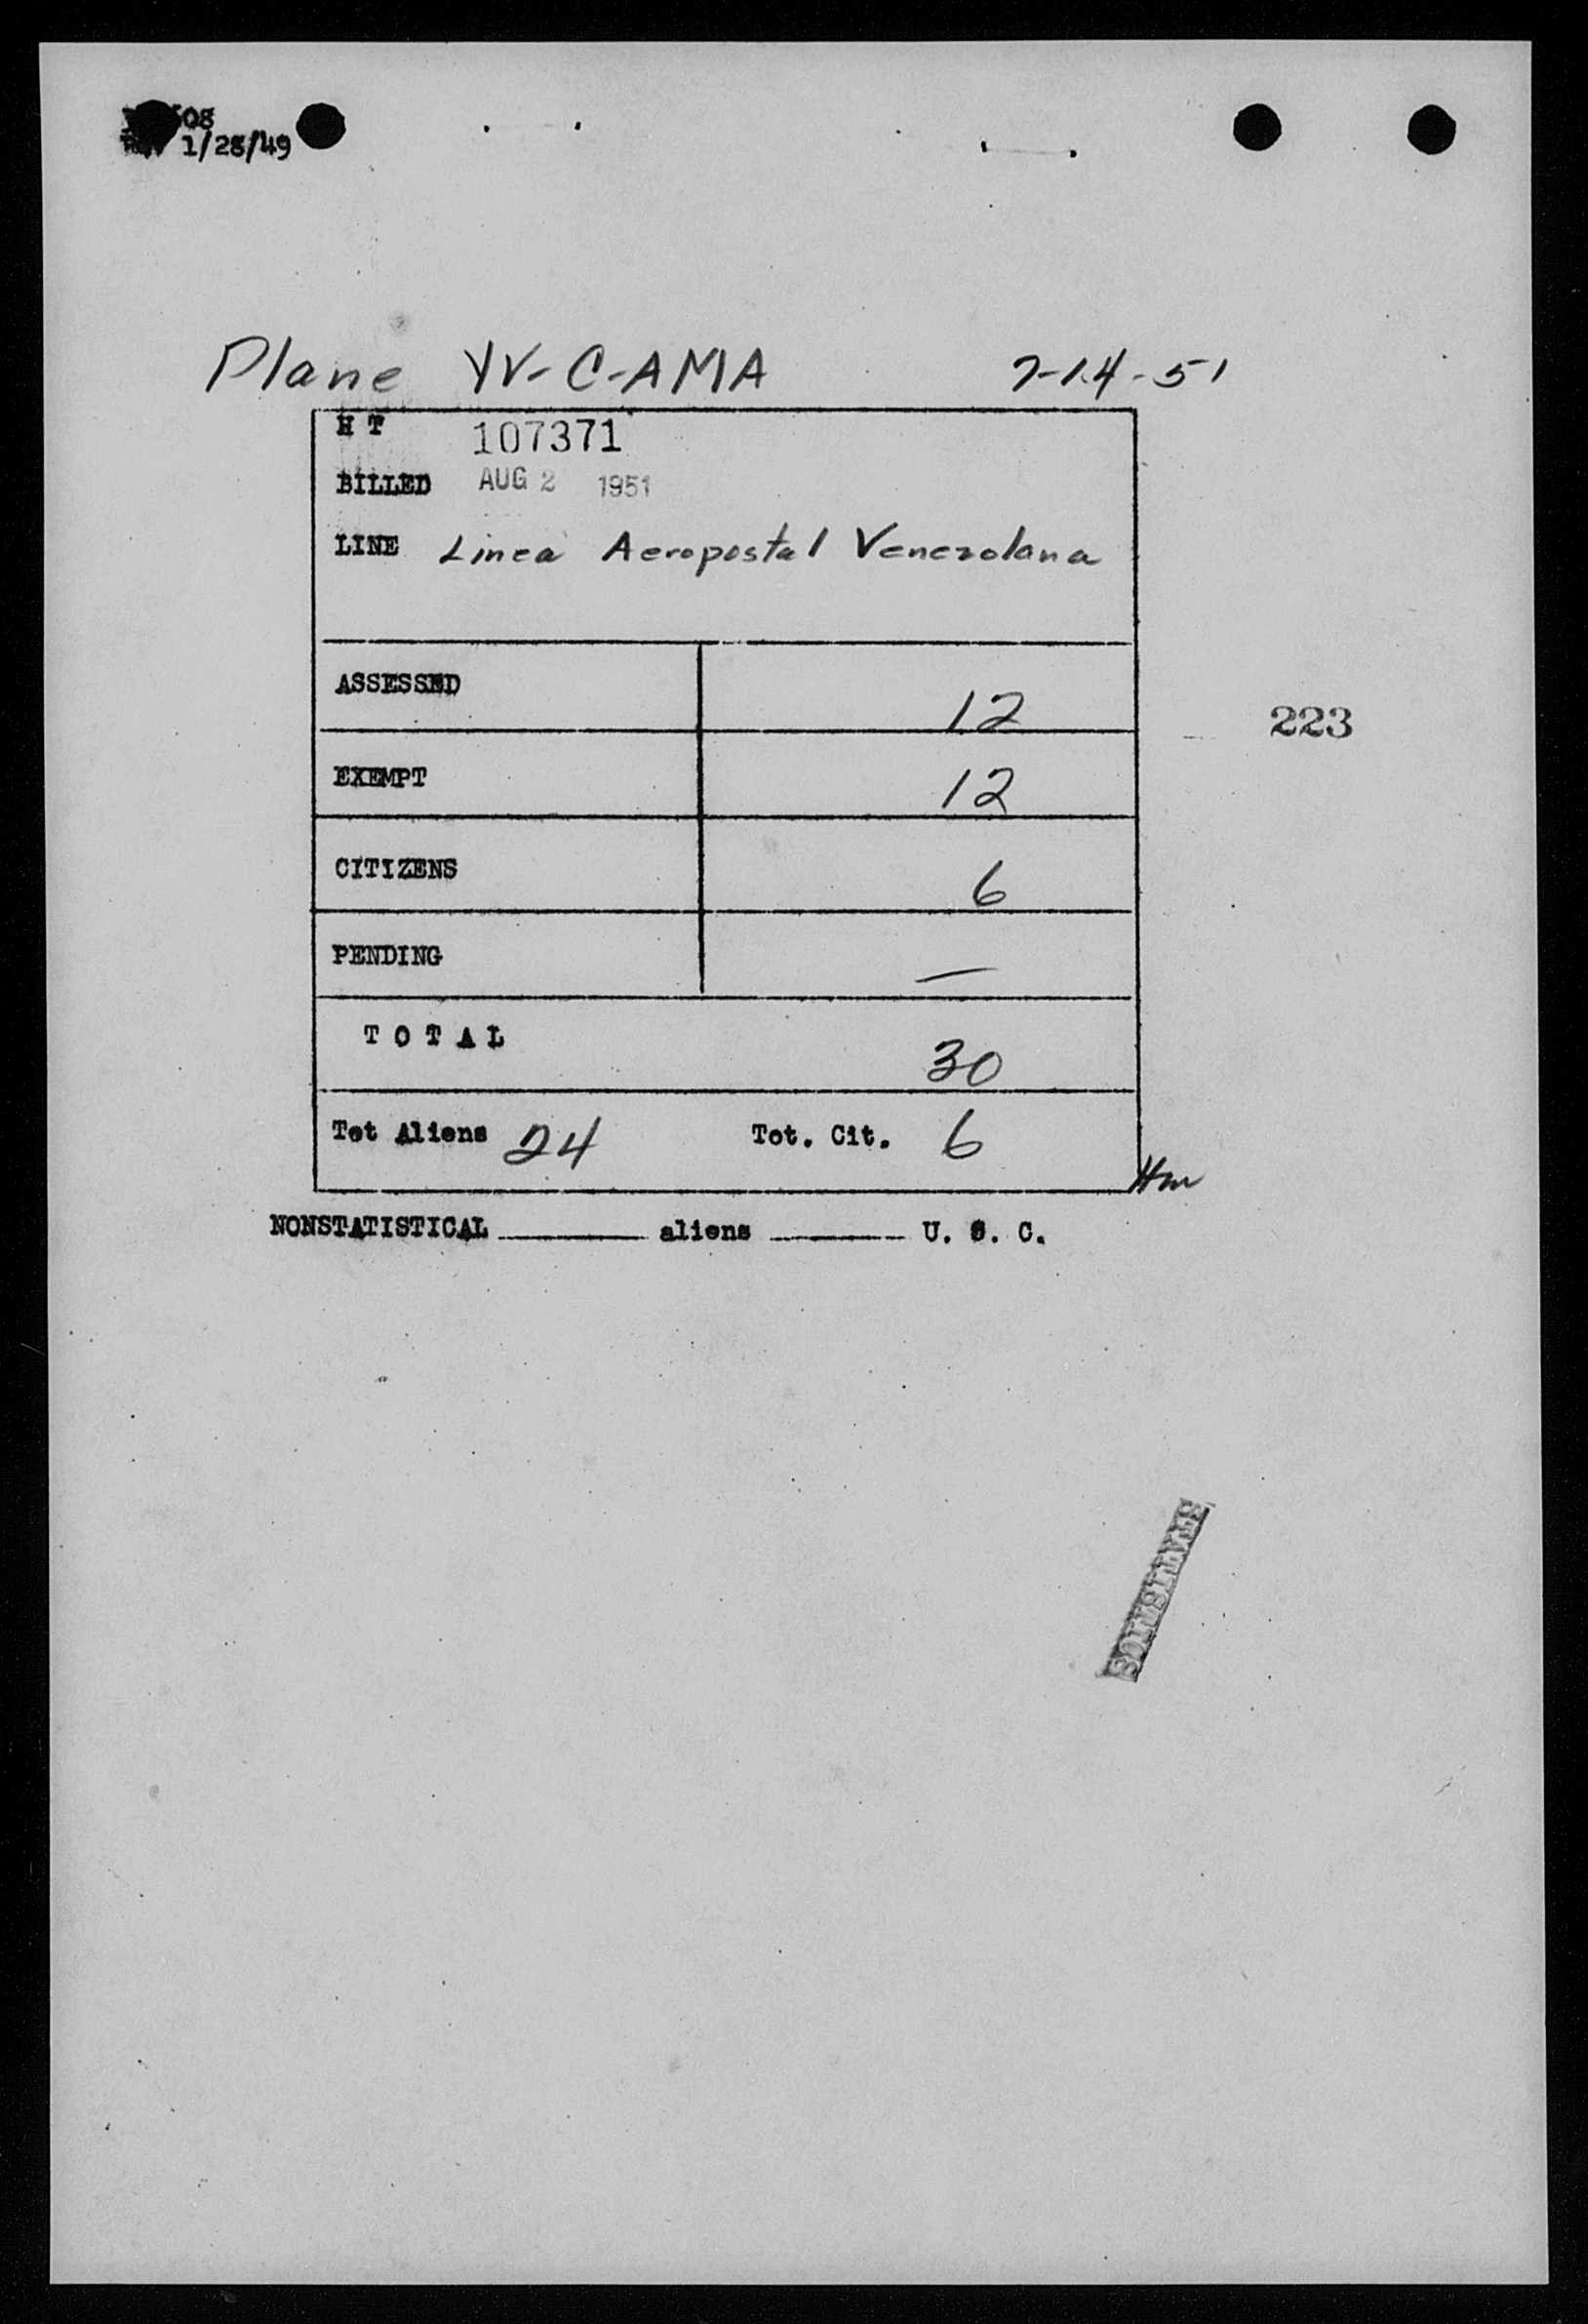 08
1/28/49
Plane YV-C-AMA 7-14-51
H T 107371
BILLED AUG 2 1951
LINE Linea Aeropostal Venezolana
ASSESSED 12
223
EXEMPT 12
CITIZENS 6
PENDING —
T O T A L 30
Tot Aliens 24 Tot. Cit. 6
Hm
NONSTATISTICAL ______ aliens ______ U. S. C.
STATISTICS